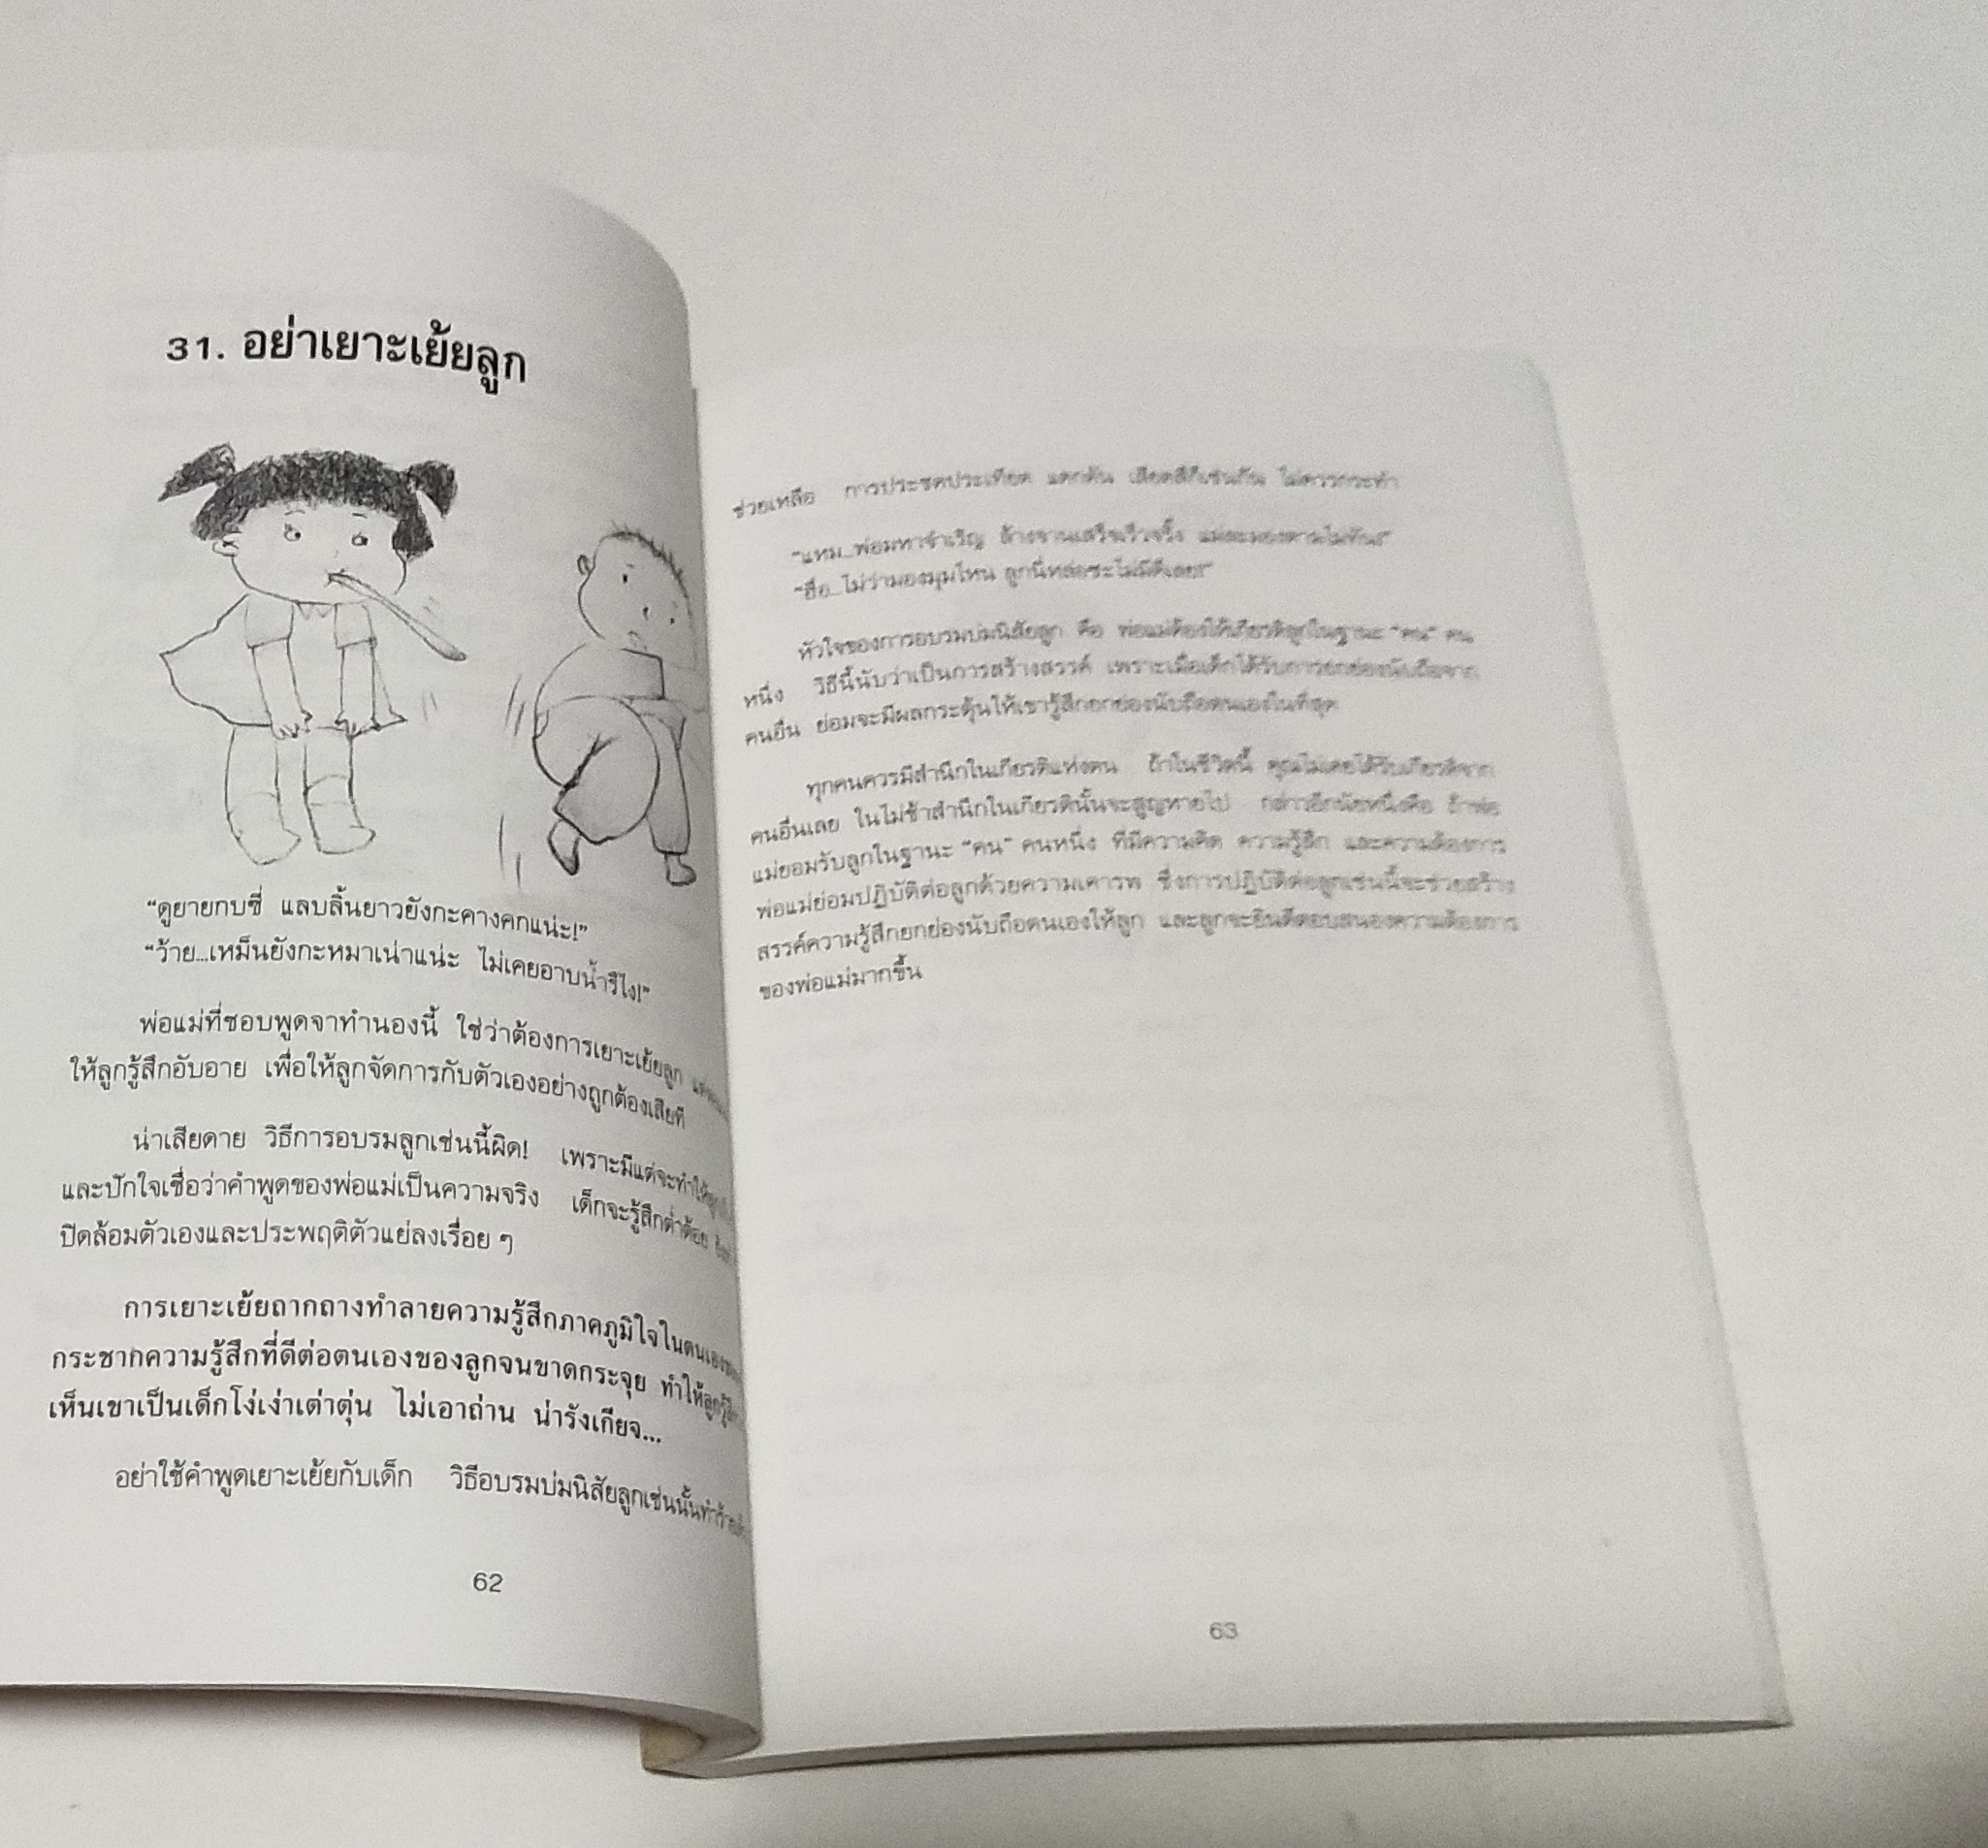 31. อย่าเยาะเย้ยลูก
“ดูยายกบซี่ แลบลิ้นยาวยังกะคางคกแน่ะ!”
“ว้าย...เหม็นยังกะหมาเน่าแน่ะ ไม่เคยอาบน้ำรึไง!”
พ่อแม่ที่ชอบพูดจาทำนองนี้ ใช่ว่าต้องการเยาะเย้ยลูก
ให้ลูกรู้สึกอับอาย เพื่อให้ลูกจัดการกับตัวเองอย่างถูกต้องเสียที
น่าเสียดาย วิธีการอบรมลูกเช่นนี้ผิด! เพราะมีแต่จะทำให้
และปักใจเชื่อว่าคำพูดของพ่อแม่เป็นความจริง เด็กจะรู้สึกต่ำต้อย
ปิดล้อมตัวเองและประพฤติตัวแย่ลงเรื่อย ๆ
การเยาะเย้ยถากถางทำลายความรู้สึกภาคภูมิใจในตนเอง
กระชากความรู้สึกที่ดีต่อตนเองของลูกจนขาดกระจุย ทำให้ลูกรู้สึก
เห็นเขาเป็นเด็กโง่เง่าเต่าตุ่น ไม่เอาถ่าน น่ารังเกียจ...
อย่าใช้คำพูดเยาะเย้ยกับเด็ก วิธีอบรมบ่มนิสัยลูกเช่นนั้น
62
ช่วยเหลือ การประชดประเทียด แดกดัน เสียดสีก็เช่นกัน ไม่ควรกระทำ
“แหม...พ่อมหาจำเริญ ล้างจานเสร็จเร็วจริ๊ง แม่ละมองตามไม่ทัน!”
“ฮือ...ไม่ว่ามองมุมไหน ลูกนี่หล่อซะไม่มีดีเลย!”
หัวใจของการอบรมบ่มนิสัยลูก คือ พ่อแม่ต้องให้เกียรติลูกในฐานะ “คน” คน
หนึ่ง วิธีนี้นับว่าเป็นการสร้างสรรค์ เพราะเมื่อเด็กได้รับการยกย่องนับถือจาก
คนอื่น ย่อมจะมีผลกระตุ้นให้เขารู้สึกยกย่องนับถือตนเองในที่สุด
ทุกคนควรมีสำนึกในเกียรติแห่งตน ถ้าในชีวิตนี้ คุณไม่เคยได้รับเกียรติจาก
คนอื่นเลย ในไม่ช้าสำนึกในเกียรตินั้นจะสูญหายไป กล่าวอีกนัยหนึ่งคือ ถ้าพ่อ
แม่ยอมรับลูกในฐานะ “คน” คนหนึ่ง ที่มีความคิด ความรู้สึก และความต้องการ
พ่อแม่ย่อมปฏิบัติต่อลูกด้วยความเคารพ ซึ่งการปฏิบัติต่อลูกเช่นนี้จะช่วยสร้าง
สรรค์ความรู้สึกยกย่องนับถือตนเองให้ลูก และลูกจะยินดีตอบสนองความต้องการ
ของพ่อแม่มากขึ้น
63